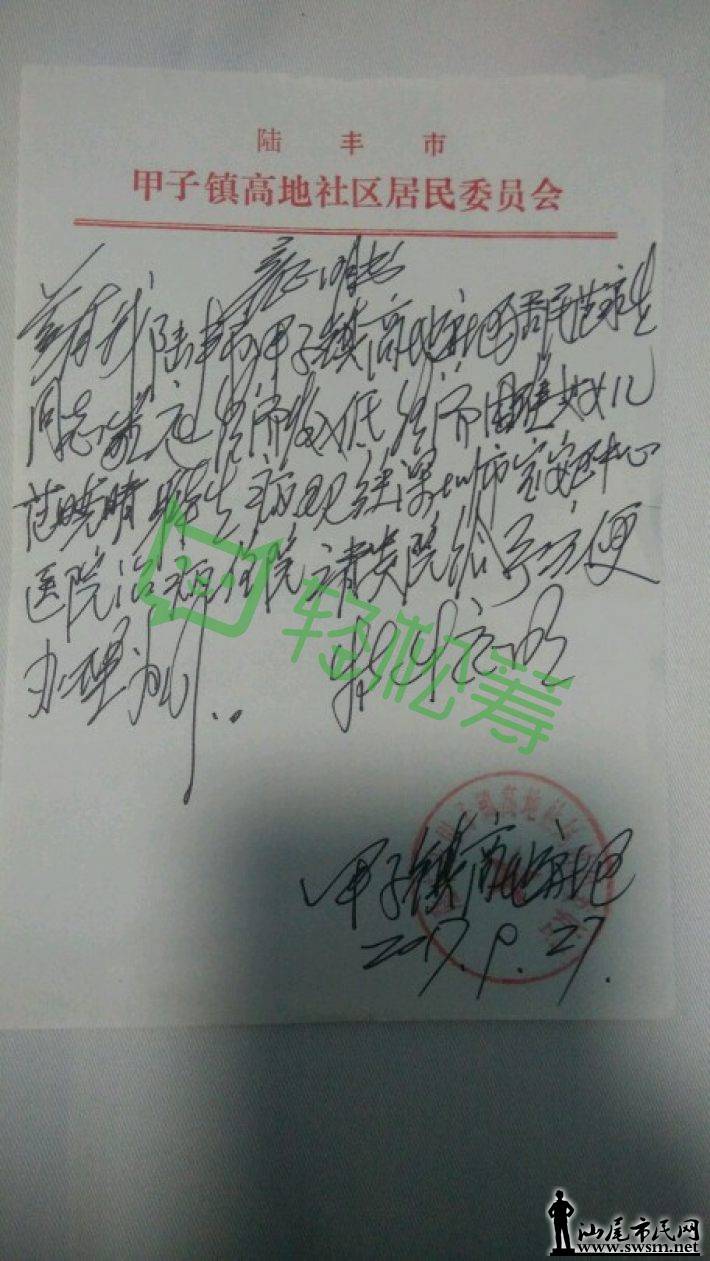 陆丰市
甲子镇高地社区居民委员会
证明书
兹有我陆丰市甲子镇高地社区居民范
同志家庭经济收低经济困难女儿
范晓晴生病现在深圳市宝安中心
医院治病住院请贵院给予方便
办理为
特此证明
轻松筹
甲子镇高地社区
2017.9.27.
汕尾市民网
www.swsm.net